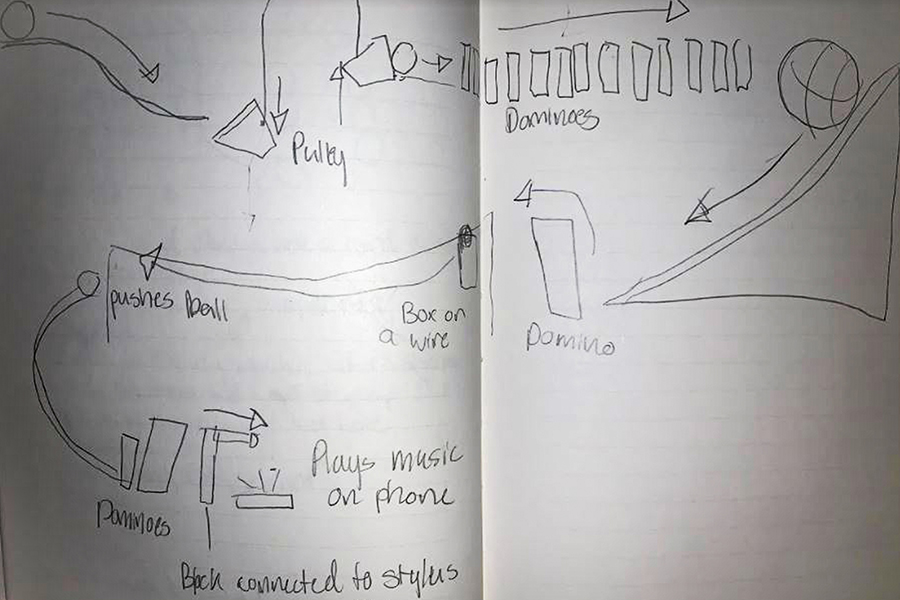 Pully
Dominoes
pushes ball
Box on
a wire
Domino
Plays music
on phone
Dominoes
Block connected to stylus